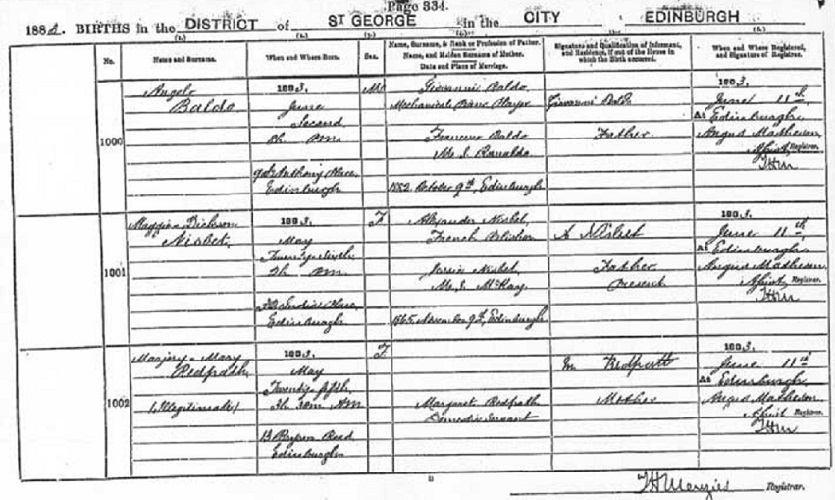 Page 334.
188 . BIRTHS in the DISTRICT of ST GEORGE in the CITY EDINBURGH
(1.) (2.) (3.) (4.) (5.) (6.)
No. Name and Surname. When and Where Born. Sex. Name, Surname, & Rank or Profession of Father. Name, and Maiden Surname of Mother. Date and Place of Marriage. Signature and Qualification of Informant, and Residence, if out of the House in which the Birth occurred. When and Where Registered, and Signature of Registrar.
1000
Angelo
Baldo
1883.
June
Second
Anthony Place
Edinburgh
M
Giovanni Baldo
Mechanical Piano Player
Baldo
M.S.
1882. October 9th, Edinburgh
Giovanni
Father
1883.
June 11th
At Edinburgh
Angus Matheson
Assist. Registrar.
1001
Maggie Dickson
Nisbet
1883.
May
Edinburgh
F.
Alexander Nisbet
French Polisher
Jessie Nisbet
M.S. McKay
1865. November 9th, Edinburgh
A Nisbet
Father
Present
1883.
June 11th
At Edinburgh
Angus Matheson
Assist. Registrar.
1002
Marjory Mary
Redpath
(Illegitimate)
1883.
May
Twenty fifth
3h 30m AM
Road
Edinburgh
F.
Margaret Redpath
Domestic Servant
M Redpath
Mother
1883.
June 11th
At Edinburgh
Angus Matheson
Assist. Registrar.
Registrar.